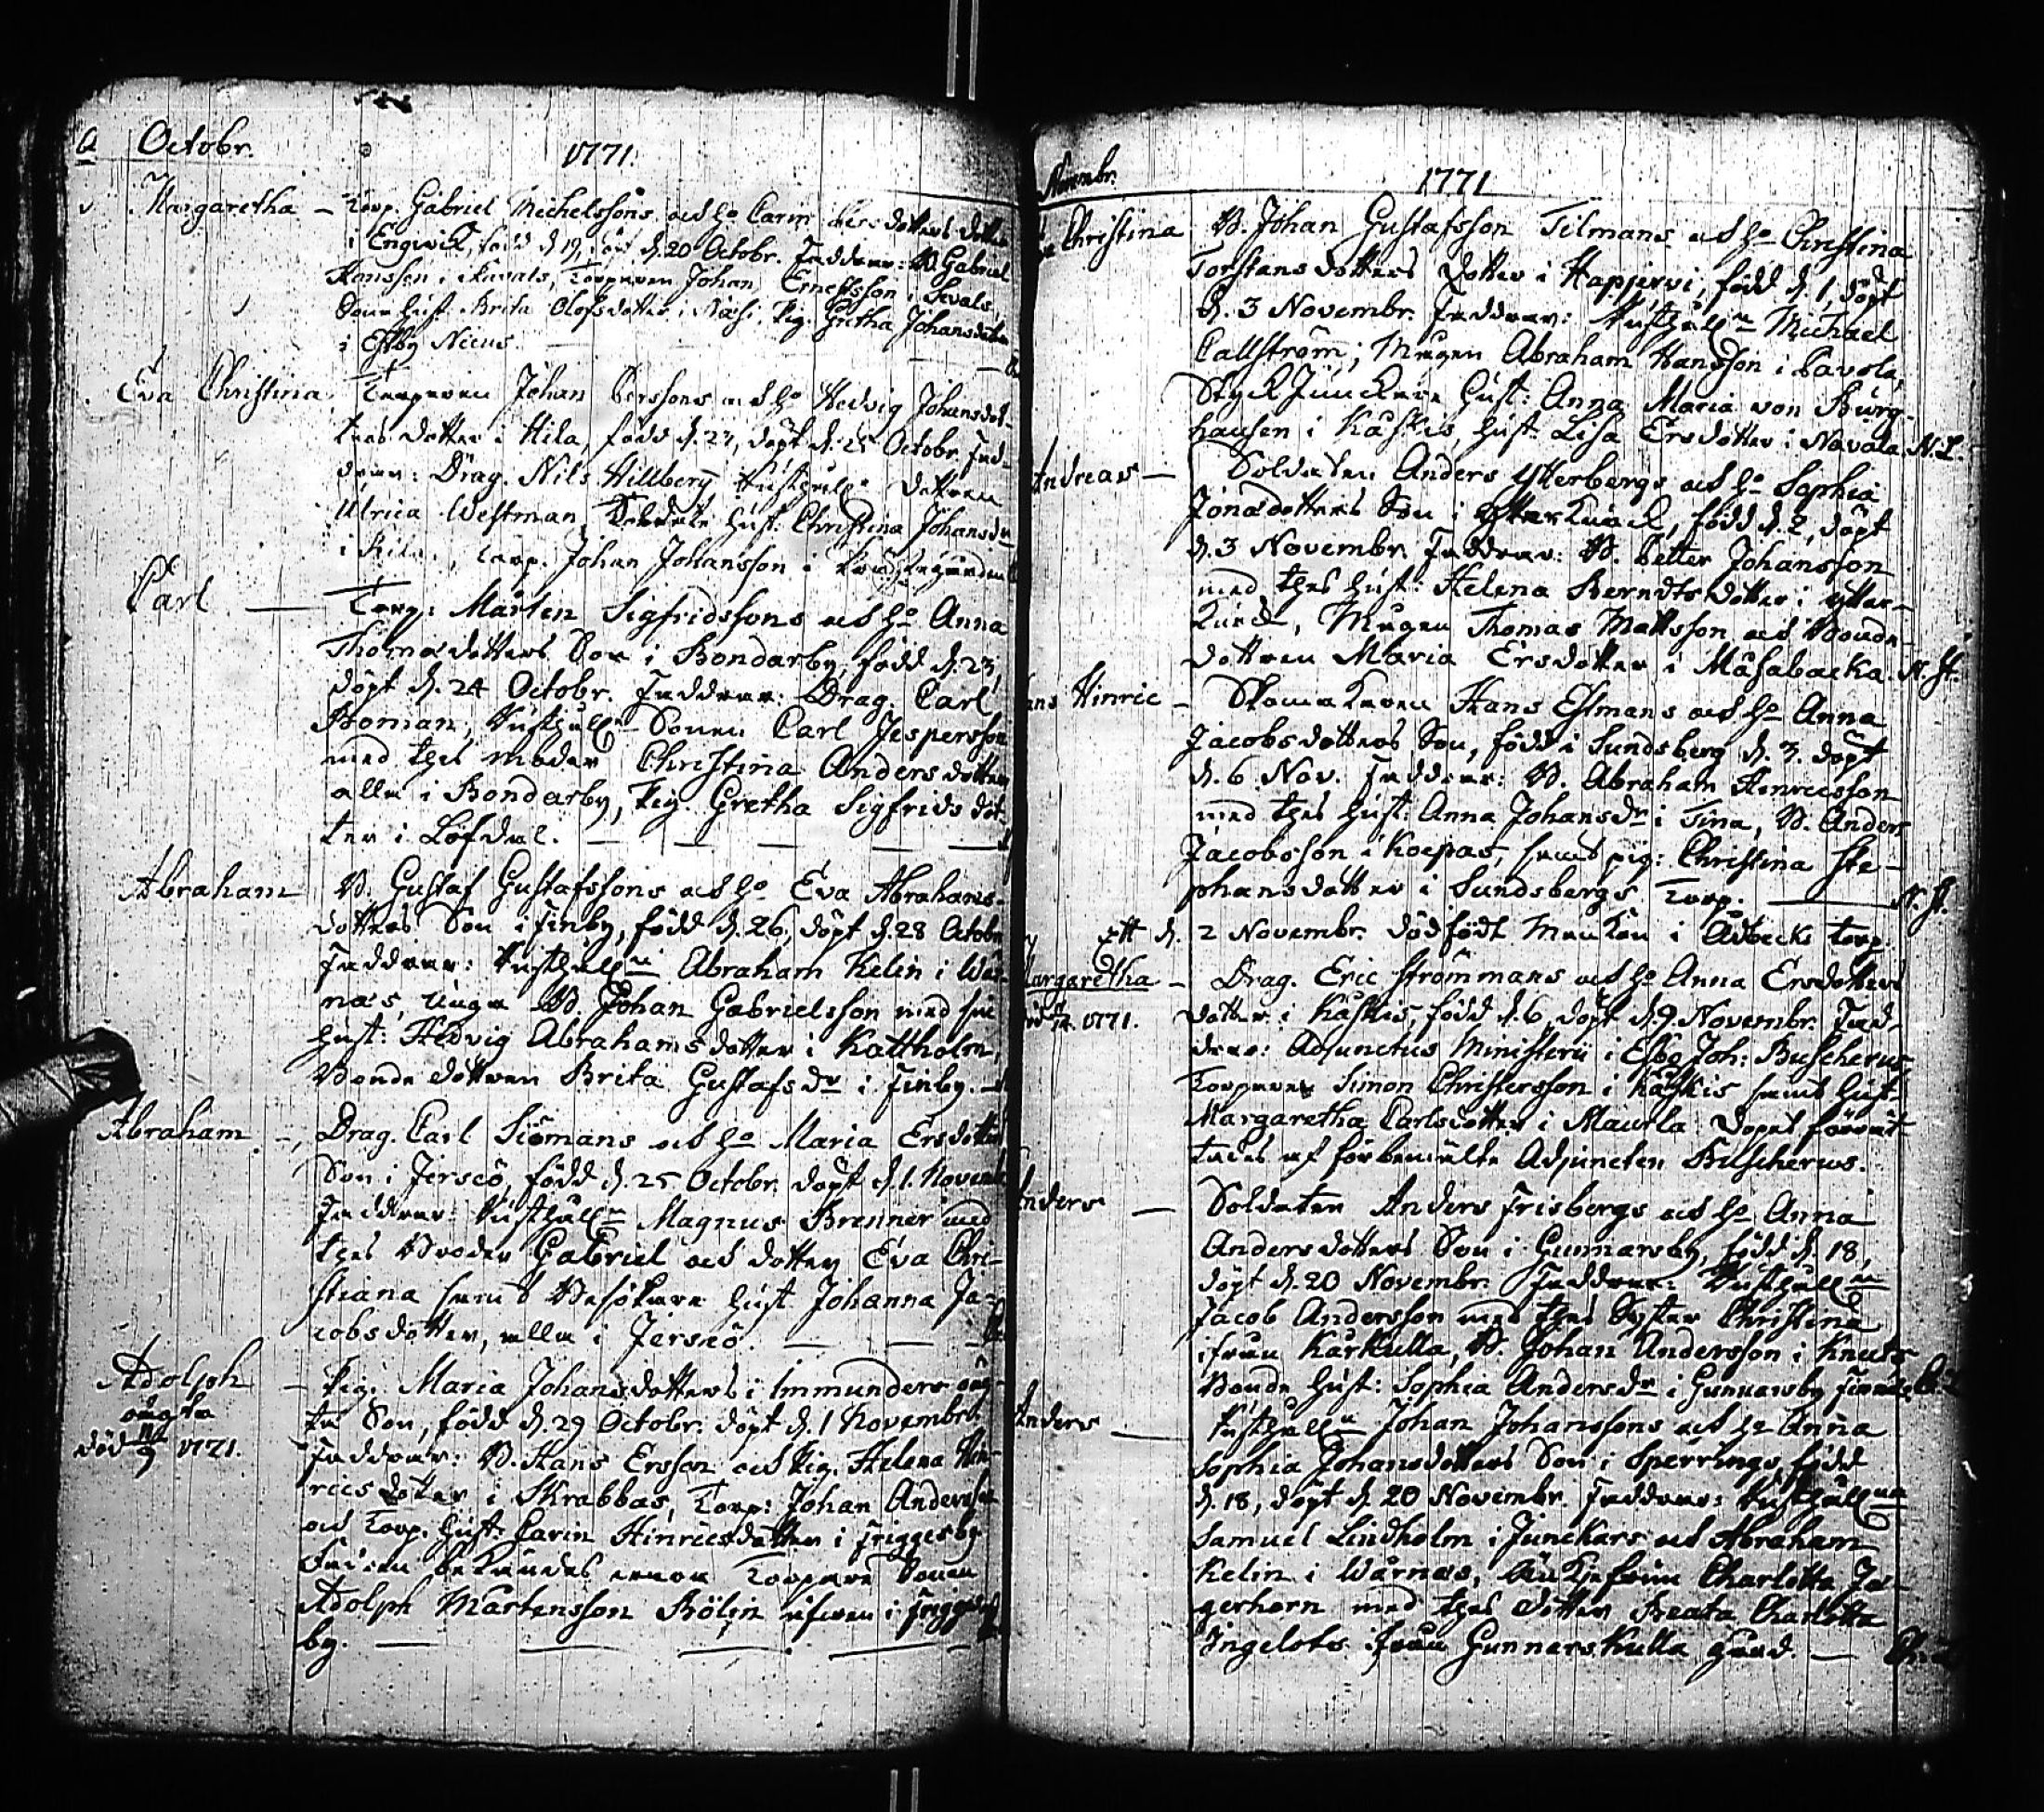 Octobr. 1771.
Margaretha – Torp. Gabriel Michelssons och ho Carin dotters dotter
i Engvik, född d. 19, döpt d. 20 Octobr. Faddrar: B. Gabriel
Hansson i, Torparen Johan Ernestsson i
Hust. Brita Olofsdotter i, Pig. Gretha Johansdotter
i Esby
Eva Christina. Torparen Johan Perssons och ho Hedvig Johansdot-
ters dotter i Hila, född d. 23, döpt d. 25 Octobr. Fad-
drar: Drag. Nils Hillberg, Rusthåll. dottren
Ulrica Westman, Hust. Christina Johansdr
i, Torp. Johan Johansson i
Carl — Torp: Mårten Sigfridssons och ho Anna
Thomædotters Son i Bondarby, född d. 23,
döpt d. 24 Octobr. Faddrar: Drag. Carl
Boman, Rusthåll. Sonen Carl Jespersson
med thes moder Christina Andersdotter
alla i Bondarby, Pig. Gretha Sigfrids dot-
ter i Löfdal. — — — —
Abraham B. Gustaf Gustafssons och ho Eva Abrahams-
dotters Son i Finby, född d. 26, döpt d. 28 Octobr.
Faddrar: Rusthålln Abraham Kelin i Wår-
näs, unga B. Johan Gabrielsson med sin
Hust: Hedvig Abrahamsdotter i Kattholm,
Bonde dottren Brita Gustafsdr i Finby. —
Abraham – Drag. Carl Siömans och ho Maria Ersdotters
Son i Jerseö, född d. 25 Octobr. döpt d. 1. Novemb.
Faddrar: Rusthålln Magnus Brenner med
thes Broder Gabriel och dotter Eva Chri-
stiana samt Besökare Hust. Johanna Ja-
cobsdotter, alla i Jerseö. — — —
Adolph – Pig. Maria Johansdotters i Immunders oäg-
oägta ta Son, född d. 29 Octobr. döpt d. 1 Novembr.
död 9 1771. Faddrar: B. Hans Ersson och Pig. Helena Hin-
ricsdotter i Skrabbas, Torp: Johan Andersson
och Torp. Hust: Carin Hinricsdotter i Friggesby
Fadren bekändes Torpare Sonen
Adolph Mårtensson Bölin äfven i Frigges-
by. — — — —
Novembr. 1771
Christina B. Johan Gustafsson Tilmans och ho Christina
Torstansdotters dotter i Hapjervi, född d. 1, döpt
d. 3 Novembr. Faddrar: Rusthålln Michael
Callström; Abraham Hansson i Pavola,
StyckJunckare Hust: Anna Maria von Burg-
hausen i Kaskis, Hust. Lisa Ersdotter i Navala. N. L.
Andreas — Soldaten Anders Ytterbergs och ho Sophia
Jonædotters Son i, född d. 2, döpt
d. 3 Novembr. Faddrar: B. Petter Johansson
med thes Hust: Helena Berndtsdotter i Ytter-
, Thomas Mattsson och Bonde-
dottren Maria Ersdotter i Måsabacka. N. St.
Hans Hinric – Skomakaren Hans Estmans och ho Anna
Jacobsdotters Son, född i Sundsberg d. 3. döpt
d. 6 Nov. Faddrar: B. Abraham Henricsson
med thes Hust: Anna Johansdr i Tina, B. Anders
Jacobsson i Koepas, samt pig: Christina Ste-
phansdotter i Sundsbergs Torp. — N. St.
Ett d. 2 Novembr. dödfödt i Adbecks Torp.
Margaretha – Drag. Eric Strömmans och ho Anna Ersdotters
1771. dotter i Kaskis, född d. 6, döpt d. 9. Novembr. Fad-
drar: Adjunctus Ministerii i Esbo Joh: Buscherus,
Torparen Simon Christersson i Kaskis samt Hust.
Margaretha Carlsdotter i Maurla. Dopet förrät-
tades af förbemälte Adjuncten Buscherus.
Anders — Soldaten Anders Frisbergs och ho Anna
Andersdotters Son i Gunnarsby, född d. 18,
döpt d. 20 Novembr. Faddrar: Rusthålln
Jacob Andersson med thes Syster Christina
ifrån Karkulla, B. Johan Andersson i Knuts
Bonde Hust: Sophia Andersdr i Gunnarsby
Anders — Rusthålln Johan Johanssons och ho Anna
Sophia Johansdotters Son i Sperrings född
d. 18, döpt d. 20 Novembr. Faddrar: Rusthållne
Samuel Lindholm i Junckars och Abraham
Kelin i Wårnäs, Änkjefrun Charlotta Jä-
gerhorn med thes dotter Beata Charlotta
Ingelots ifrån Gunnarskulla gård. —